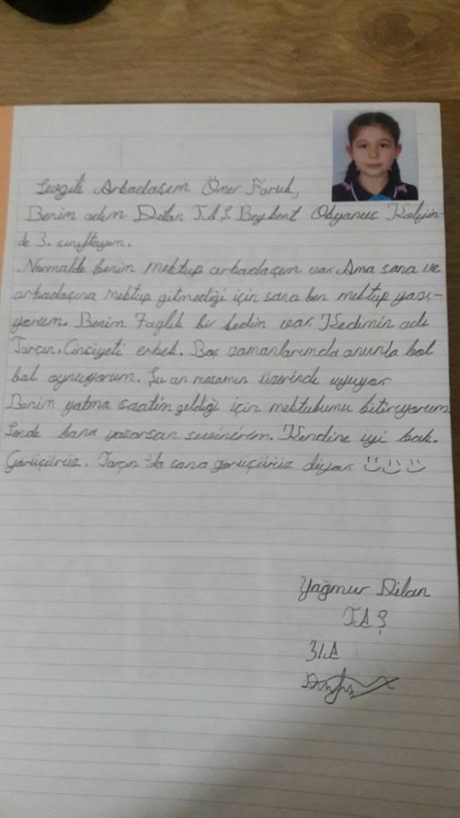 Sevgili Arkadaşım Ömer Faruk,
Benim adım Dilan TAŞ. Beykent Okyanus Kolejin-
de 3. sınıftayım.
Normalde benim mektup arkadaşım var. Ama sana ve
arkadaşına mektup gitmediği için sana ben mektup yazı-
yorum. Benim 7 aylık bir kedim var. Kedimin adı
Tarçın. Cinsiyeti erkek. Boş zamanlarımda onunla bol
bol oynuyorum. Şu an masamın üzerinde uyuyor
Benim yatma saatim geldiği için mektubumu bitiriyorum
Sende bana yazarsan sevinirim. Kendine iyi bak.
Görüşürüz. Tarçın'da sana görüşürüz diyor
Yağmur Dilan
TAŞ
3/A